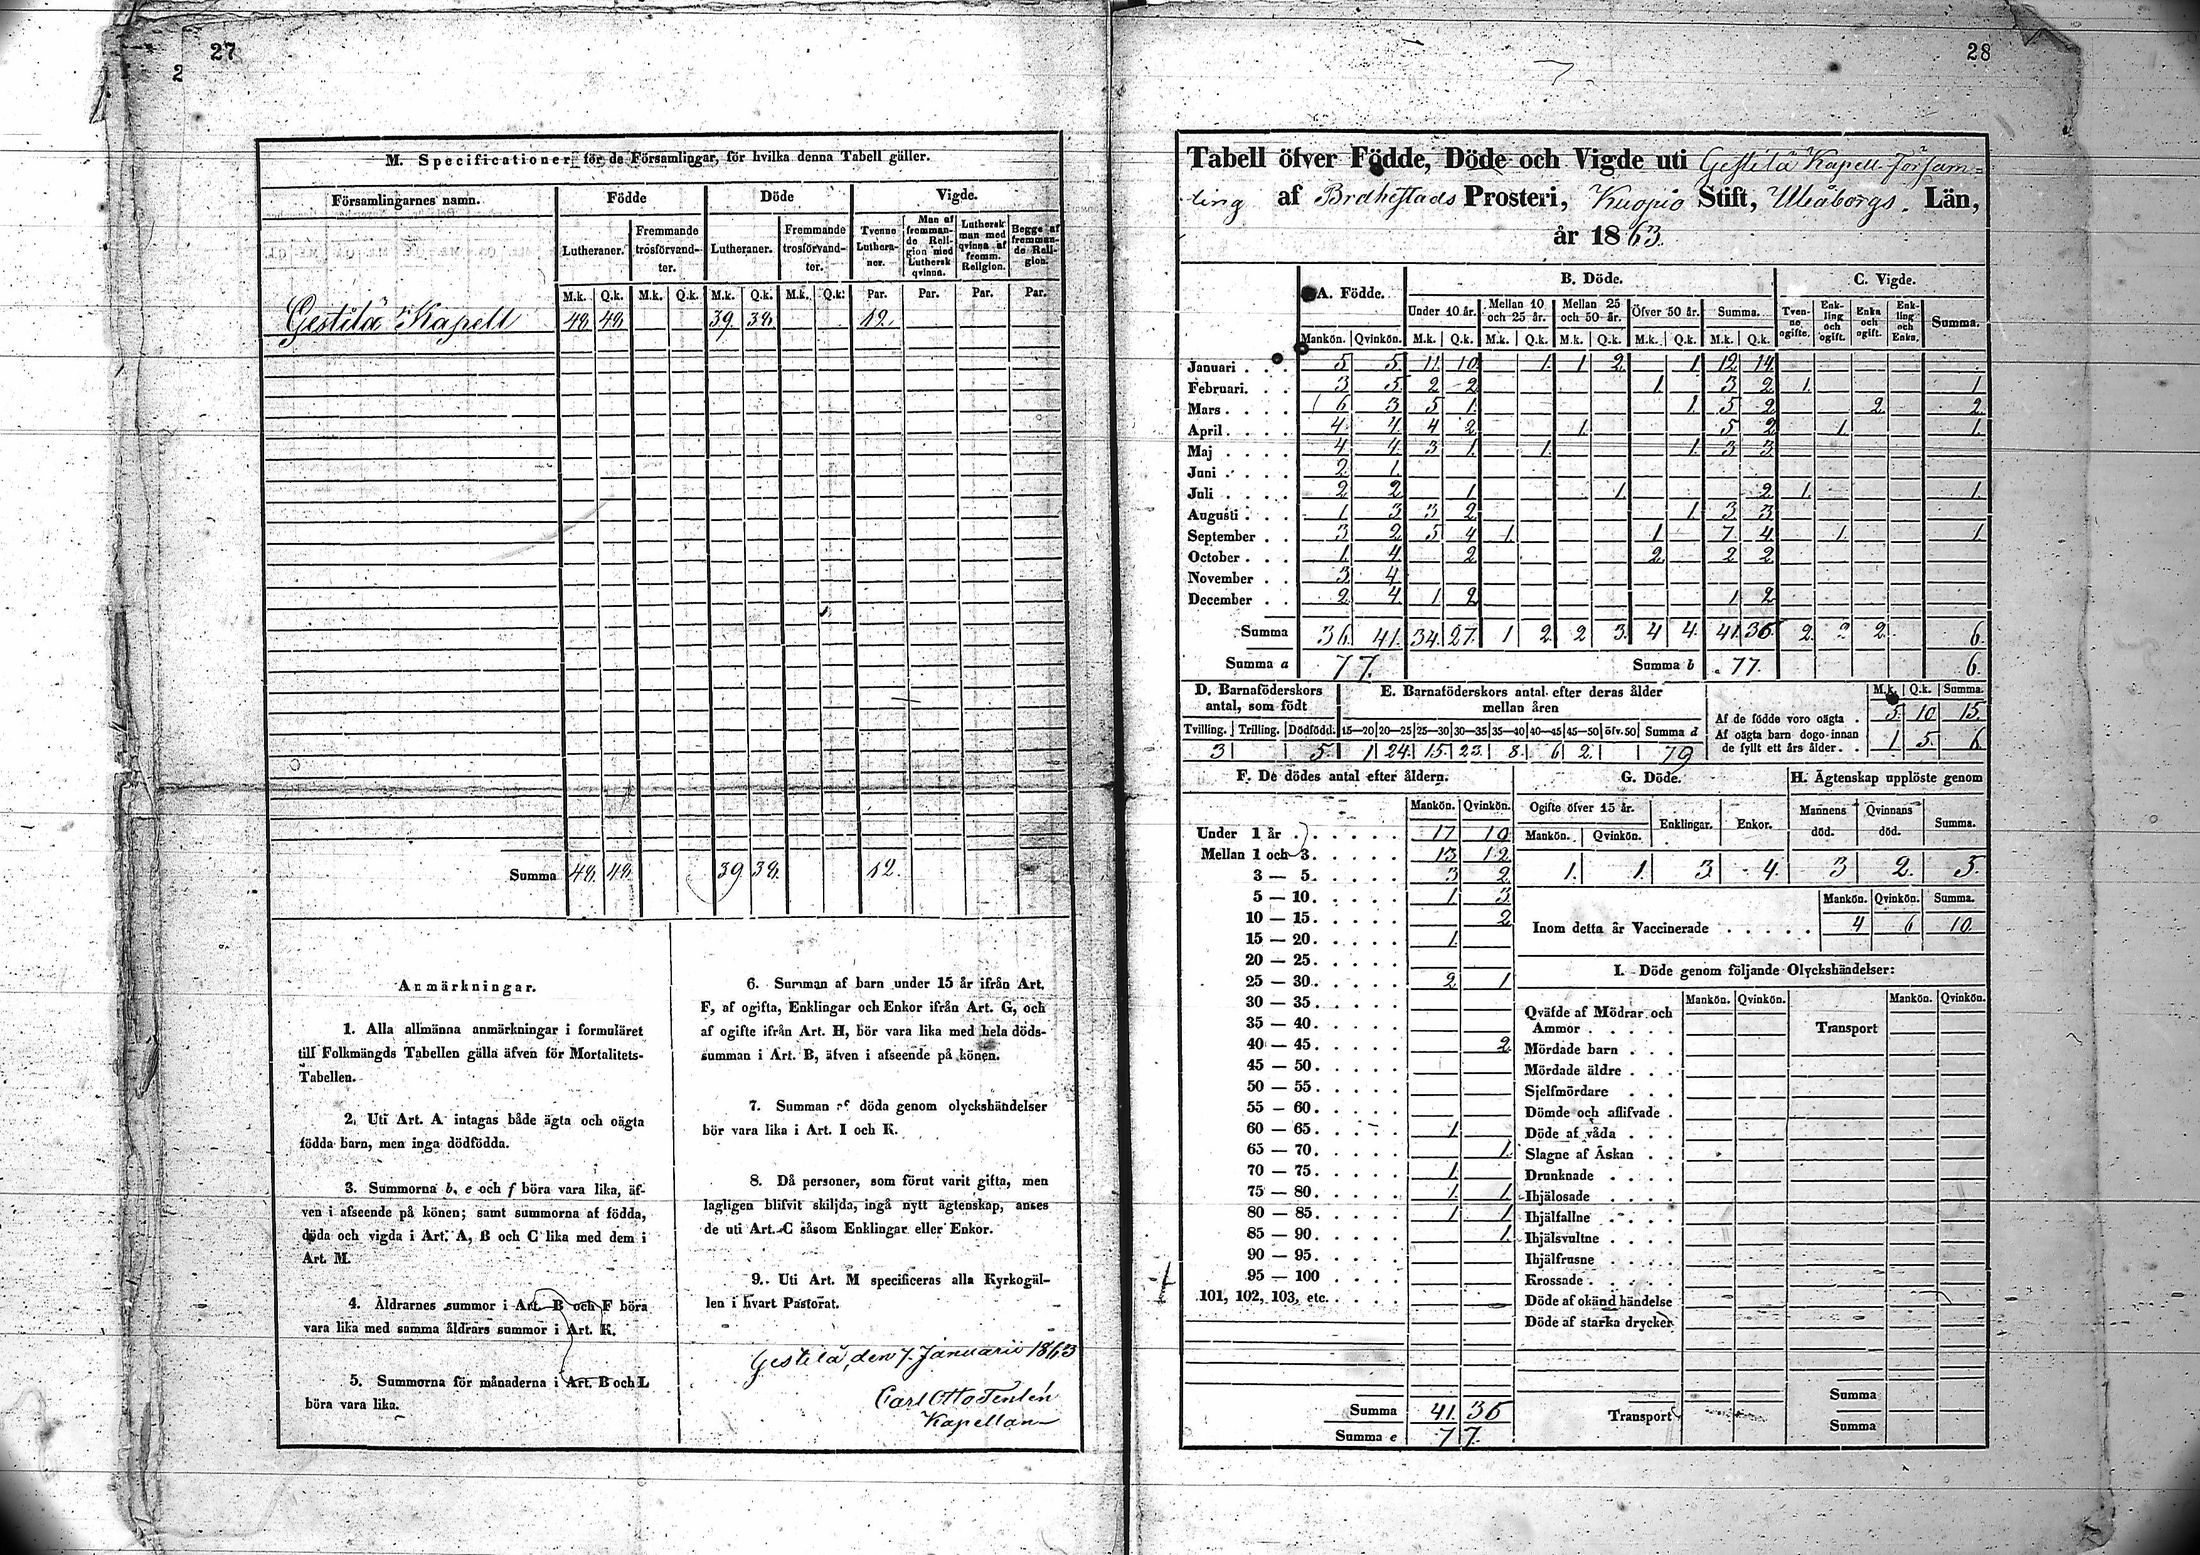 27
2
M. Specificationer, för de Församlingar, för hvilka denna Tabell gäller.
Församlingarnes namn. Födde Döde Vigde.
Lutheraner. Fremmande trosförvandter. Lutheraner. Fremmande trosförvandter. Tvenne Lutheraner. Man af fremmande Religion med Luthersk qvinna. Luthersk man med qvinna af fremm. Religion. Begge af fremmande Religion.
M.k. Q.k. M.k. Q.k. M.k. Q.k. M.k. Q.k. Par. Par. Par. Par.
Gestilä Kapell 48 48 39. 38. 12.
Summa 48. 48. 39 38. 12.
Anmärkningar.
1. Alla allmänna anmärkningar i formuläret
till Folkmängds Tabellen gälla äfven för Mortalitets-
Tabellen.
2. Uti Art. A intagas både ägta och oägta
födda barn, men inga dödfödda.
3. Summorna b, e och f böra vara lika, äf-
ven i afseende på könen; samt summorna af födda,
döda och vigda i Art. A, B och C lika med dem i
Art. M.
4. Åldrarnes summor i Art. B och F böra
vara lika med samma åldrars summor i Art. K.
5. Summorna för månaderna i Art. B och L
böra vara lika.
6. Summan af barn under 15 år ifrån Art.
F, af ogifta, Enklingar och Enkor ifrån Art. G, och
af ogifte ifrån Art. H, bör vara lika med hela döds-
summan i Art. B, äfven i afseende på könen.
7. Summan af döda genom olyckshändelser
bör vara lika i Art. I och K.
8. Då personer, som förut varit gifta, men
lagligen blifvit skiljda, ingå nytt ägtenskap, anses
de uti Art. C såsom Enklingar eller Enkor.
9. Uti Art. M specificeras alla Kyrkogäl-
len i hvart Pastorat.
Gestilä, den 7. Januario 1863
Carl Otto Tenlén
Kapellan
28
Tabell öfver Födde, Döde och Vigde uti Gestilä Kapell-Försam=
ling af Brahestads Prosteri, Kuopio Stift, Uleåborgs. Län,
år 1863.
A. Födde. B. Döde. C. Vigde.
Under 10 år. Mellan 10 och 25 år. Mellan 25 och 50 år. Öfver 50 år. Summa. Tvenne ogifte. Enkling och ogift. Enka och ogift. Enkling och Enka. Summa.
Mankön. Qvinkön. M.k. Q.k. M.k. Q.k. M.k. Q.k. M.k. Q.k. M.k. Q.k.
Januari 5 5. 11. 10. 1. 1 2. 1. 12. 14.
Februari. 3 5 2 2 1. 3 2 1. 1.
Mars 6 3 5 1. 1. 5 2 2. 2.
April 4. 4 4 2 1. 5 2 1. 1.
Maj 4 4. 3 1. 1. 1. 3 3
Juni 2. 1.
Juli 2 2 1. 1. 2. 1. 1.
Augusti 1 3 3 2 1. 3 3
September 3 2 5 4 1. 1 7 4 1. 1
October 1. 4. 2 2. 2 2
November 3 4
December 2 4. 1 2 1 2
Summa 36. 41. 34. 27. 1 2. 2 3. 4 4. 41. 36. 2. 2 2. 6.
Summa a 77. Summa b 77. 6.
D. Barnaföderskors antal, som födt
E. Barnaföderskors antal efter deras ålder mellan åren
M.k. Q.k. Summa.
Tvilling. Trilling. Dödfödd. 15—20 20—25 25—30 30—35 35—40 40—45 45—50 öfv. 50 Summa d
3 5. 1 24. 15. 23. 8. 6 2. 79
Af de födde voro oägta 5. 10 15.
Af oägta barn dogo innan de fyllt ett års ålder 1 5. 6
F. De dödes antal efter åldern.
Mankön. Qvinkön.
Under 1 år 17 10
Mellan 1 och 3 13 12
3 — 5 3 2
5 — 10 1 3
10 — 15 2
15 — 20 1.
20 — 25
25 — 30 2 1
30 — 35
35 — 40
40 — 45 2
45 — 50
50 — 55
55 — 60
60 — 65 1
65 — 70 1.
70 — 75 1
75 — 80 1. 1.
80 — 85 1 1
85 — 90 1.
90 — 95
95 — 100
101, 102, 103, etc.
Summa 41. 36
Summa e 77.
G. Döde.
Ogifte öfver 15 år. Enklingar. Enkor.
Mankön. Qvinkön.
1. 1. 3. 4.
H. Ägtenskap upplöste genom
Mannens död. Qvinnans död. Summa.
3 2. 5.
Mankön. Qvinkön. Summa.
Inom detta år Vaccinerade 4 6 10.
I. Döde genom följande Olyckshändelser:
Mankön. Qvinkön. Mankön. Qvinkön.
Qväfde af Mödrar och Ammor Transport
Mördade barn
Mördade äldre
Sjelfmördare
Dömde och aflifvade
Döde af våda
Slagne af Åskan
Drunknade
Ihjälosade
Ihjälfallne
Ihjälsvultne
Ihjälfrusne
Krossade
Döde af okänd händelse
Döde af starka drycker
Summa
Transport
Summa